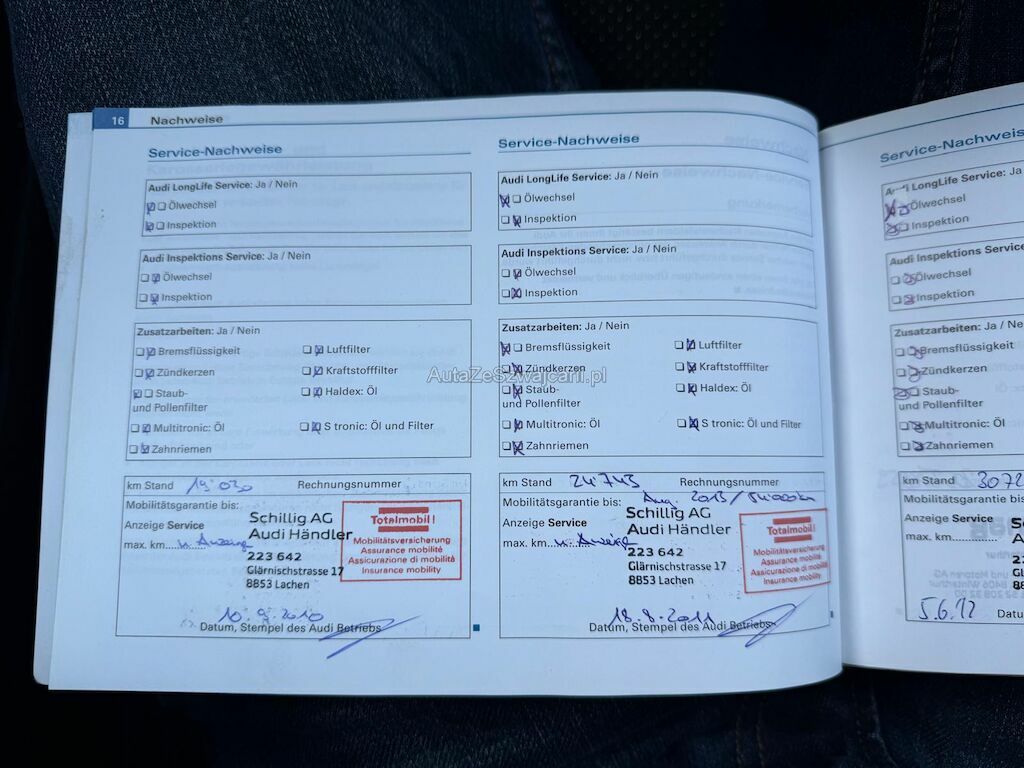 16 Nachweise
Service-Nachweise
Audi LongLife Service: Ja / Nein
Ölwechsel
Inspektion
Audi Inspektions Service: Ja / Nein
Ölwechsel
Inspektion
Zusatzarbeiten: Ja / Nein
Bremsflüssigkeit
Luftfilter
Zündkerzen
Kraftstofffilter
Staub-
und Pollenfilter
Haldex: Öl
Multitronic: Öl
S tronic: Öl und Filter
Zahnriemen
km Stand 19'030 Rechnungsnummer
Mobilitätsgarantie bis:
Anzeige Service
max. km n. Anzeige
Schillig AG
Audi Händler
223 642
Glärnischstrasse 17
8853 Lachen
Totalmobil!
Mobilitätsversicherung
Assurance mobilité
Assicurazione di mobilità
Insurance mobility
10.9.2010
Datum, Stempel des Audi Betriebs
Service-Nachweise
Audi LongLife Service: Ja / Nein
Ölwechsel
Inspektion
Audi Inspektions Service: Ja / Nein
Ölwechsel
Inspektion
Zusatzarbeiten: Ja / Nein
Bremsflüssigkeit
Luftfilter
Zündkerzen
Kraftstofffilter
Staub-
und Pollenfilter
Haldex: Öl
Multitronic: Öl
S tronic: Öl und Filter
Zahnriemen
km Stand 24'743 Rechnungsnummer
Mobilitätsgarantie bis: Aug. 2013 / 54000km
Anzeige Service
max. km n. Anzeige
Schillig AG
Audi Händler
223 642
Glärnischstrasse 17
8853 Lachen
Totalmobil!
Mobilitätsversicherung
Assurance mobilité
Assicurazione di mobilità
Insurance mobility
18.8.2011
Datum, Stempel des Audi Betriebs
Service-Nachweis
LongLife Service: Ja
Ölwechsel
Inspektion
Audi Inspektions Service
Ölwechsel
Inspektion
Zusatzarbeiten: Ja / Nein
Bremsflüssigkeit
Zündkerzen
Staub-
und Pollenfilter
Multitronic: Öl
Zahnriemen
km Stand 3072
Mobilitätsgarantie bis
Anzeige Service
max. km
5.6.12
AutaZeSzwajcarii.pl